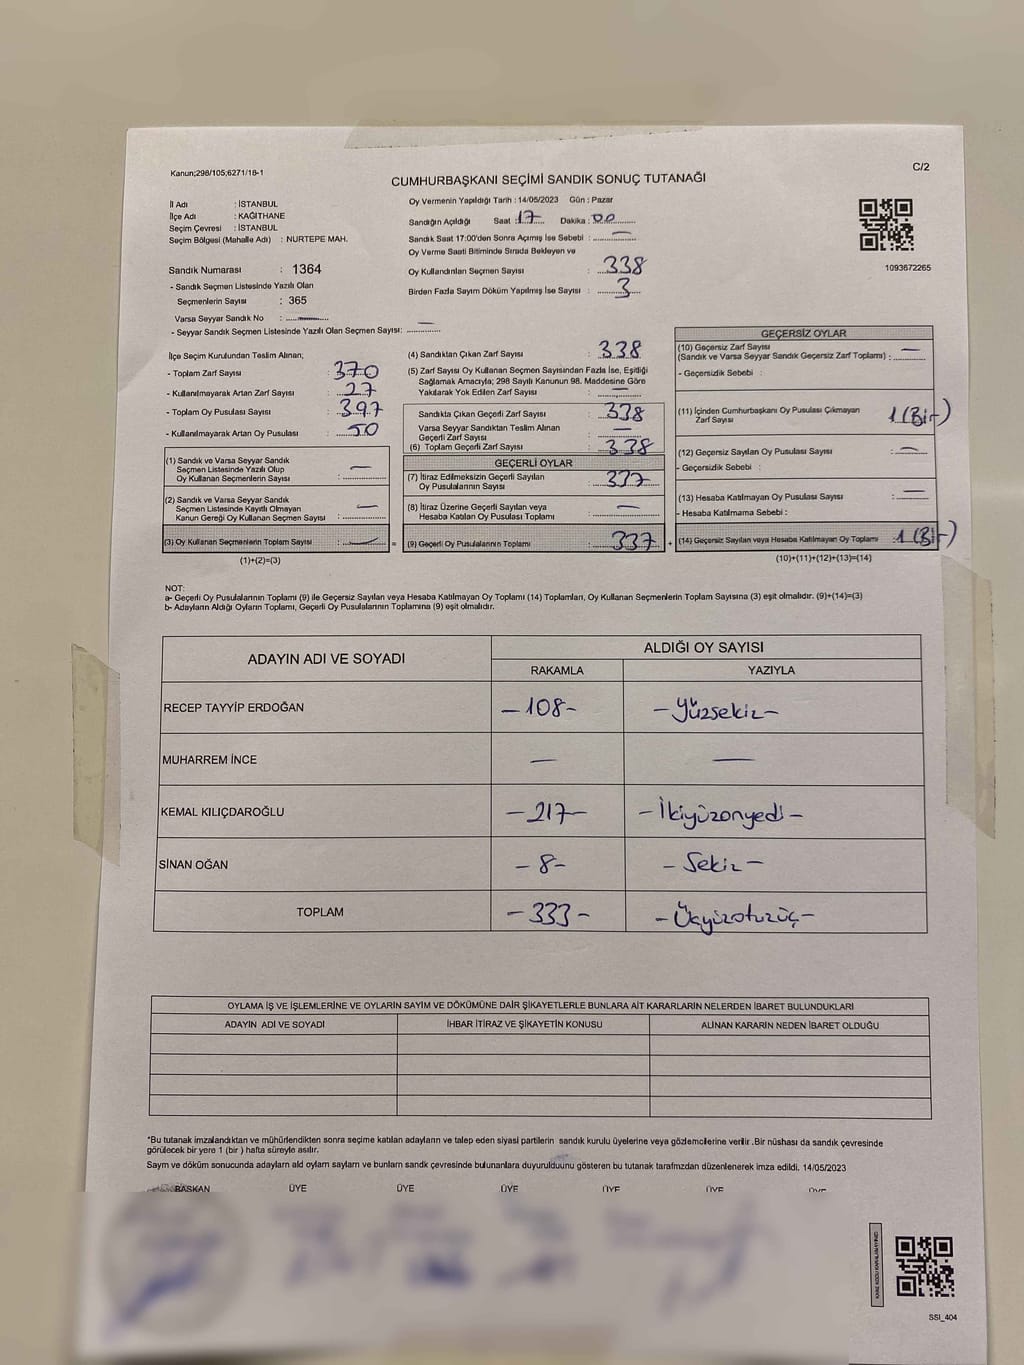 Kanun;298/105;6271/18-1
C/2
CUMHURBAŞKANI SEÇİMİ SANDIK SONUÇ TUTANAĞI
İl Adı : İSTANBUL
İlçe Adı : KAĞITHANE
Seçim Çevresi : İSTANBUL
Seçim Bölgesi (Mahalle Adı) : NURTEPE MAH.
Sandık Numarası : 1364
- Sandık Seçmen Listesinde Yazılı Olan
Seçmenlerin Sayısı : 365
Varsa Seyyar Sandık No : —
- Seyyar Sandık Seçmen Listesinde Yazılı Olan Seçmen Sayısı: —
Oy Vermenin Yapıldığı Tarih : 14/05/2023 Gün : Pazar
Sandığın Açıldığı Saat : 17 Dakika : 00
Sandık Saat 17:00'den Sonra Açılmış İse Sebebi : —
Oy Verme Saati Bitiminde Sırada Bekleyen ve
Oy Kullandırılan Seçmen Sayısı : 338
Birden Fazla Sayım Döküm Yapılmış İse Sayısı : 3
1093672265
İlçe Seçim Kurulundan Teslim Alınan;
- Toplam Zarf Sayısı : 370
- Kullanılmayarak Artan Zarf Sayısı : 27
- Toplam Oy Pusulası Sayısı : 397
- Kullanılmayarak Artan Oy Pusulası : 50
(1) Sandık ve Varsa Seyyar Sandık
Seçmen Listesinde Yazılı Olup
Oy Kullanan Seçmenlerin Sayısı : —
(2) Sandık ve Varsa Seyyar Sandık
Seçmen Listesinde Kayıtlı Olmayan
Kanun Gereği Oy Kullanan Seçmen Sayısı : —
(3) Oy Kullanan Seçmenlerin Toplam Sayısı : —
(1)+(2)=(3)
(4) Sandıktan Çıkan Zarf Sayısı : 338
(5) Zarf Sayısı Oy Kullanan Seçmen Sayısından Fazla İse, Eşitliği
Sağlamak Amacıyla; 298 Sayılı Kanunun 98. Maddesine Göre
Yakılarak Yok Edilen Zarf Sayısı : —
Sandıkta Çıkan Geçerli Zarf Sayısı : 338
Varsa Seyyar Sandıktan Teslim Alınan
Geçerli Zarf Sayısı : —
(6) Toplam Geçerli Zarf Sayısı : 338
GEÇERLİ OYLAR
(7) İtiraz Edilmeksizin Geçerli Sayılan
Oy Pusulalarının Sayısı : 337
(8) İtiraz Üzerine Geçerli Sayılan veya
Hesaba Katılan Oy Pusulası Toplamı : —
= (9) Geçerli Oy Pusulalarının Toplamı : 337 +
GEÇERSİZ OYLAR
(10) Geçersiz Zarf Sayısı
(Sandık ve Varsa Seyyar Sandık Geçersiz Zarf Toplamı) : —
- Geçersizlik Sebebi :
(11) İçinden Cumhurbaşkanı Oy Pusulası Çıkmayan
Zarf Sayısı 1 (Bir)
(12) Geçersiz Sayılan Oy Pusulası Sayısı : —
- Geçersizlik Sebebi :
(13) Hesaba Katılmayan Oy Pusulası Sayısı : —
- Hesaba Katılmama Sebebi :
(14) Geçersiz Sayılan veya Hesaba Katılmayan Oy Toplamı : 1 (Bir)
(10)+(11)+(12)+(13)=(14)
NOT:
a- Geçerli Oy Pusulalarının Toplamı (9) ile Geçersiz Sayılan veya Hesaba Katılmayan Oy Toplamı (14) Toplamları, Oy Kullanan Seçmenlerin Toplam Sayısına (3) eşit olmalıdır. (9)+(14)=(3)
b- Adayların Aldığı Oyların Toplamı, Geçerli Oy Pusulalarının Toplamına (9) eşit olmalıdır.
ADAYIN ADI VE SOYADI
ALDIĞI OY SAYISI
RAKAMLA YAZIYLA
RECEP TAYYİP ERDOĞAN -108- -Yüzsekiz-
MUHARREM İNCE — —
KEMAL KILIÇDAROĞLU -217- -İkiyüzonyedi-
SİNAN OĞAN -8- -Sekiz-
TOPLAM -333- -Üçyüzotuzüç-
OYLAMA İŞ VE İŞLEMLERİNE VE OYLARIN SAYIM VE DÖKÜMÜNE DAİR ŞİKAYETLERLE BUNLARA AİT KARARLARIN NELERDEN İBARET BULUNDUKLARI
ADAYIN ADI VE SOYADI İHBAR İTİRAZ VE ŞİKAYETİN KONUSU ALINAN KARARIN NEDEN İBARET OLDUĞU
*Bu tutanak imzalandıktan ve mühürlendikten sonra seçime katılan adayların ve talep eden siyasi partilerin sandık kurulu üyelerine veya gözlemcilerine verilir .Bir nüshası da sandık çevresinde
görülecek bir yere 1 (bir ) hafta süreyle asılır.
Sayım ve döküm sonucunda adayların aldı oyların sayıları ve bunların sandk çevresinde bulunanlara duyurulduunu gösteren bu tutanak tarafmzdan düzenlenerek imza edildi. 14/05/2023
BAŞKAN ÜYE ÜYE ÜYE ÜYE ÜYE ÜYE
SSI_404